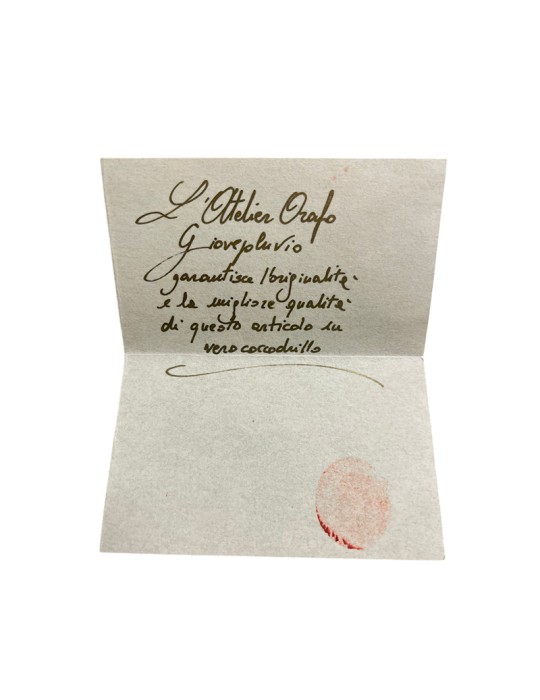 L'Atelier Orafo
Giovepluvio
garantisce l'originalità
e la migliore qualità
di questo articolo in
vero coccodrillo